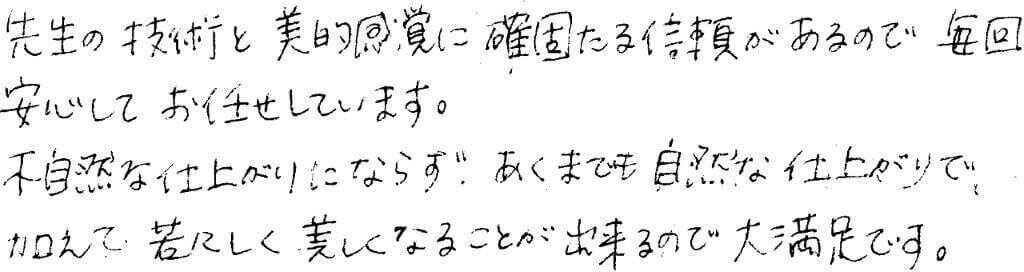 先生の技術と美的感覚に確固たる信頼があるので毎回
安心してお任せしています。
不自然な仕上がりにならず、あくまでも自然な仕上がりで、
加えて若々しく美しくなることが出来るので大満足です。